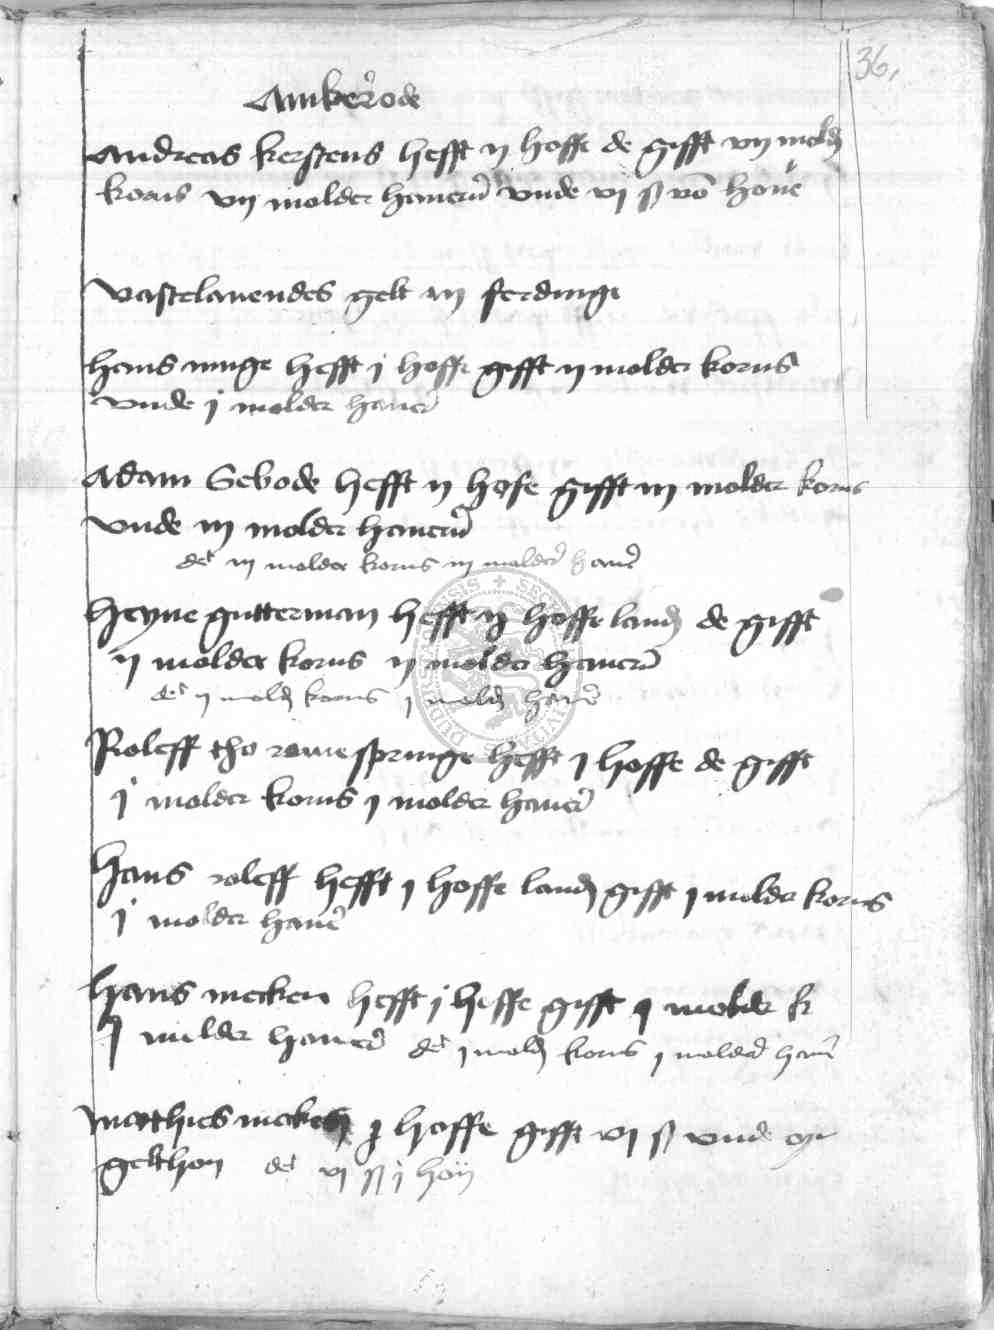 36,
Ankerode
Andreas kerstens hefft ij hoffe de gifft vij mold
korns vij molder haueru vnde vj ß vō houe
vastelauendes gelt iij ferdinge
hans runge hefft j hoffe gifft ij molder korns
vnde j molder hauer
Adam Sebode hefft ij hofe gifft iij molder korns
vnde iij molder haueru
det iij molder korns iij molder hauer
Heyne gutterman hefft ij hoffe land de gifft
ij molder korns ij molder hauern
det ij mold korns j mold hauer
Roleff tho rame springe hefft j hoffe de gifft
j molder korns j molder hauer
Hans roleff hefft j hoffe land gifft j molder korns
j molder hauer
hans mecken hefft j hoffe gifft j molder k
j molder hauer det j mold korns j molder hauer
matthies meken j hoffe gifft vj ß vnde
gelthon det vj ß j hon